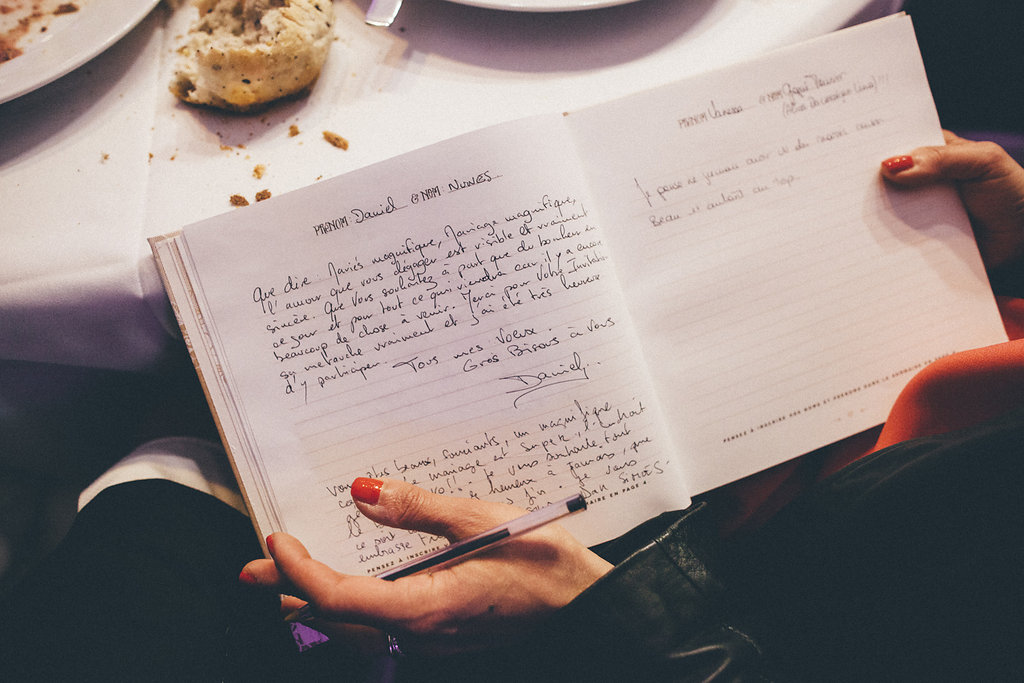 PRÉNOM: Daniel & NOM: NUNES
Que dire Mariés magnifique, Mariage magnifique,
l'amour que vous dégager est visible et vraiment
sincère. Que vous souhaitez à part que du bonheur en
ce jour et pour tout ce qui viendra car il y a encore
beaucoup de chose à venir. Merci pour votre invitation
ça me touche vraiment et j'ai été très heureux
d'y participer. Tous mes Voeux.
Gros Bisous à vous
Daniel
beaux, souriants, un magnifique
mariage est super, l'endroit
Je vous souhaite tout
heureux à jamais, que
fin. Je vous
embrasse
PENSEZ À INSCRIRE
AIRE EN PAGE 4
PRÉNOM: Vanessa & NOM:
Je pense ne jamais avoir vu des mariés aussi
Beau et autant au top.
PENSEZ À INSCRIRE VOS NOMS ET PRÉNOMS DANS LE SOMMAIRE EN